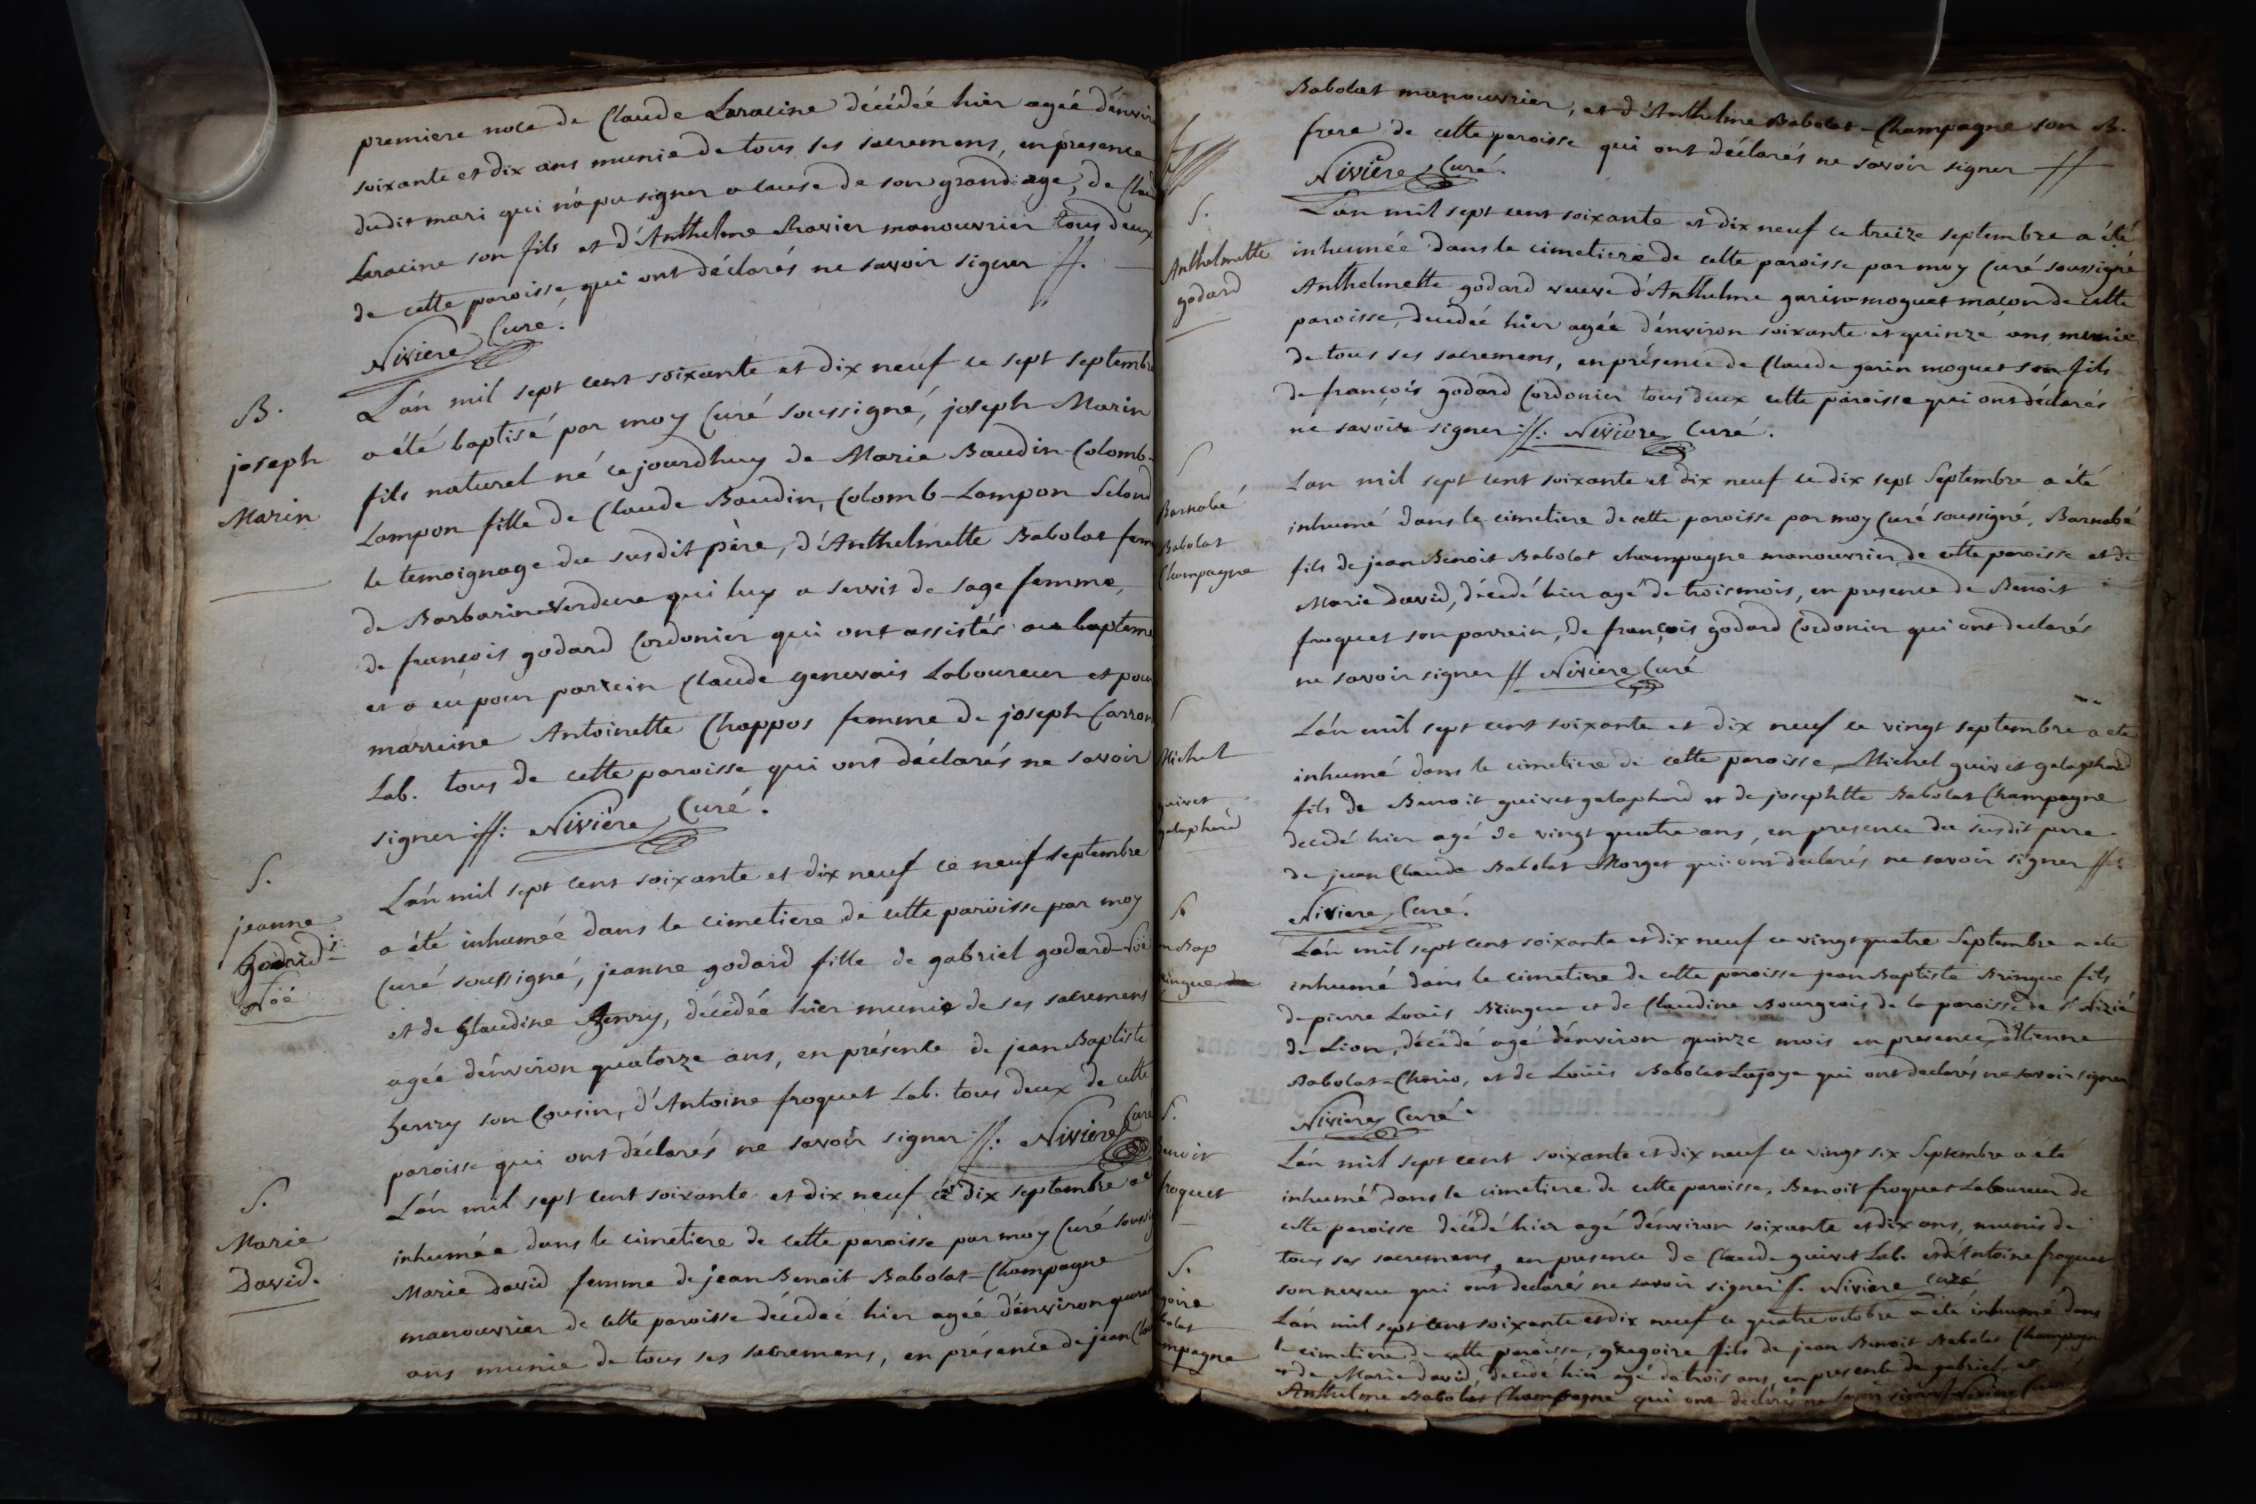 premiere noce de Claude Laracine décédée hier agée d'envir
soixante et dix ans munie de tous ses sacremens, en présence
dudit mari qui n'a pu signer a cause de son grand age, de
Laracine son fils et d'Anthelme Ravier manouvrier tous deux
de cette paroisse qui ont déclarés ne savoir signer //.
Niviere Curé.
B.
joseph
Marin
L'an mil sept cent soixante et dix neuf ce sept septembre
a été baptisé par moy Curé soussigné, joseph Marin
fils naturel né ce jourdhuy de Marie Baudin-Colomb-
Lampon fille de Claude Baudin, Colomb-Lampon Selond
le temoignage du susdit père, d'Anthelmette Babolat fem
de Barbarin Verdure qui luy a servis de sage femme,
de françois godard Cordonier qui ont assistés au bapteme
et a eu pour parrein Claude genevais Laboureur et pour
marreine Antoinette Chappos femme de joseph Carron
Lab. tous de cette paroisse qui ont déclarés ne savoir
signer //: Niviere Curé.
S.
jeanne
godard
Noé
L'an mil sept cent soixante et dix neuf ce neuf septembre
a été inhumée dans le cimetiere de cette paroisse par moy
Curé soussigné, jeanne godard fille de gabriel godard-Noé
et de Glaudine henry, décédée hier munie de ses sacremens
agée d'environ quatorze ans, en présence de jean Baptiste
henry son Cousin, d'Antoine froquet Lab. tous deux de cette
paroisse qui ont déclarés ne savoir signer //. Niviere Curé
S.
Marie
David.
L'an mil sept cent soixante et dix neuf ce dix septembre a é
inhumée dans le cimetiere de cette paroisse par moy Curé soussig
Marie David femme de jean Benoit Babolat-Champagne
manouvrier de cette paroisse décédée hier agée d'environ quaran
ans munie de tous ses sacremens, en présence de jean Clau
Babolat manouvrier, et d'Anthelme Babolat-Champagne son B.
frere de cette paroisse qui ont déclarés ne savoir signer //
Niviere Curé.
S.
Anthelmette
godard
L'an mil sept cent soixante et dix neuf ce treize septembre a été
inhumée dans le cimetiere de cette paroisse par moy Curé soussigné
Anthelmette godard veuve d'Anthelme garin-moguet maçon de cette
paroisse, decedée hier agée d'environ soixante et quinze ans munie
de tous ses sacremens, en présence de Claude garin moguet son fils
de françois godard Cordonier tous deux cette paroisse qui ont déclarés
ne savoir signer //. Niviere Curé.
S
Barnabé
Babolat
Champagne
Lan mil sept cent soixante et dix neuf ce dix sept Septembre a été
inhumé dans le cimetiere de cette paroisse par moy Curé soussigné, Barnabé
fils de jean Benoit Babolat champagne manouvrier de cette paroisse et de
Marie David, décedé hier agé de trois mois, en presence de Benoit
froquet son parrein, de françois godard Cordonier qui ont declarés
ne savoir signer // Niviere Curé
S
Michel
guivet
galaphard
L'an mil sept cent soixante et dix neuf ce vingt septembre a été
inhumé dans le cimetiere de cette paroisse, Michel guivet galaphard
fils de Benoit guivet galaphard et de josephtte Babolat Champagne
decedé hier agé de vingt quatre ans, en presence du susdit pere
de jean Claude Babolat Morget qui ont declarés ne savoir signer //.
Niviere Curé.
S.
n Bap
ringue
L'an mil sept cent soixante et dix neuf ce vingt quatre Septembre a été
inhumé dans le cimetiere de cette paroisse jean Baptiste Bringue fils
de pierre Louis Bringue et de Claudine Bourgeois de la paroisse de St Nizié
de Lion, décédé agé d'environ quinze mois en presence d'Etienne
Babolat-Chorio, et de Louis Babolat Lajoye qui ont declarés ne savoir signer
Niviere Curé.
S.
Benoit
froquet
L'an mil sept cent soixante et dix neuf ce vingt six Septembre a été
inhumé dans le cimetiere de cette paroisse, Benoit froquet Laboureur de
cette paroisse décédé hier agé d'environ soixante et dix ans, munis de
tous ses sacremens, en presence de Claude guivet Lab. et d'Antoine froquet
son neveu qui ont declarés ne savoir signer //. Niviere Curé
S.
goire
olat
mpagne
L'an mil sept cent soixante et dix neuf ce quatre octobre a été inhumé dans
le cimetiere de cette paroisse, gregoire fils de jean Benoit Babolat Champagne
et de Marie david, decedé hier agé de trois ans, en presence de gabriel et
Anthelme Babolat Champagne qui ont déclarés ne savoir signer Niviere Curé